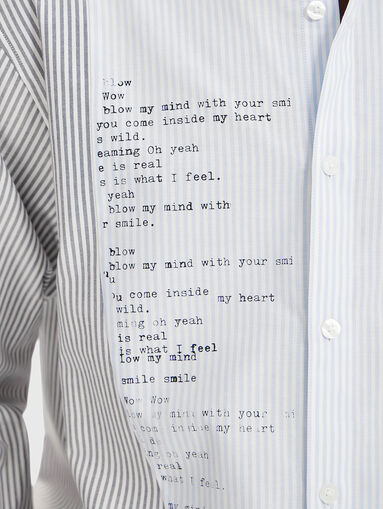 blow
Wow
blow my mind with your smi
you come inside my heart
s wild.
eaming Oh yeah
e is real
s is what I feel.
yeah
blow my mind with
r smile.
blow
blow my mind with your smi
u
ou come inside my heart
wild.
ming oh yeah
is real
is what I feel
low my mind
smile smile
Wow Wow
low my mind with your mi
com inside my heart
de
ng oh yeah
real
what I feel.
my mind